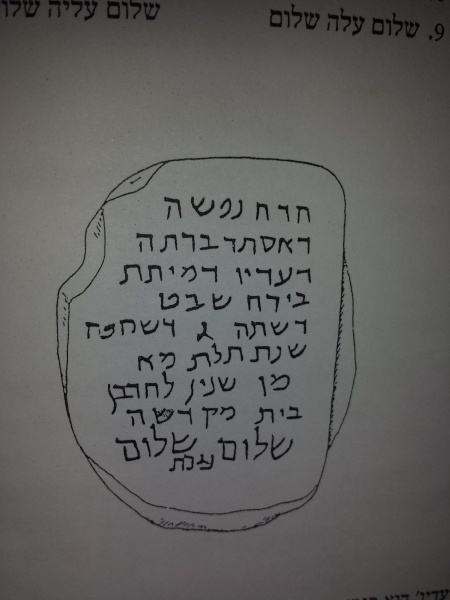 9. שלום עלה שלום שלום עליה שלו
הדה נפשה
דאסתר ברתה
דעדיו דמיתת
בירח שבט
דשתה ג
שנת תלת מא
מן שנין לחרבן
בית מקדשה
שלום שלום
עדיו' הוא